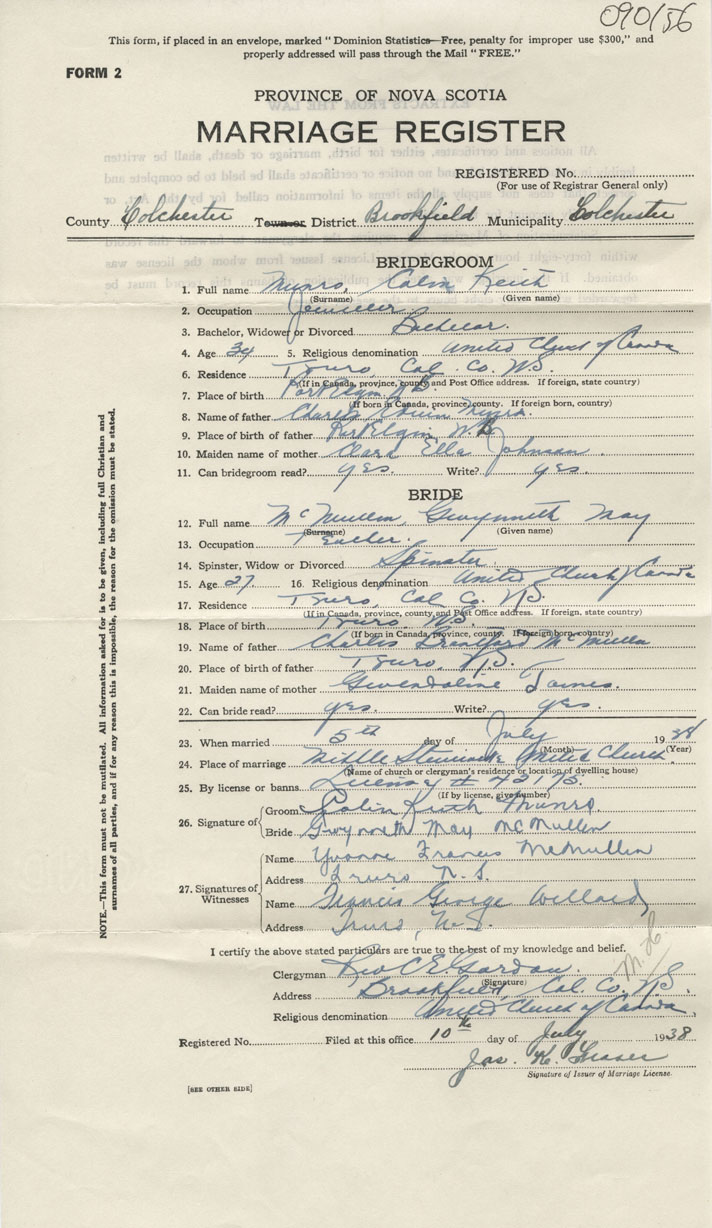 090/56
This form, if placed in an envelope, marked "Dominion Statistics—Free, penalty for improper use $300," and
properly addressed will pass through the Mail "FREE."
FORM 2
PROVINCE OF NOVA SCOTIA
MARRIAGE REGISTER
REGISTERED No.
(For use of Registrar General only)
County Colchester Town or District Brookfield Municipality Colchester
BRIDEGROOM
1. Full name Munro, Colin Keith
(Surname) (Given name)
2. Occupation Jeweller
3. Bachelor, Widower or Divorced Bachelor.
4. Age 34 5. Religious denomination United Church of Canada
6. Residence Truro, Col. Co. N.S.
(If in Canada, province, county and Post Office address. If foreign, state country)
7. Place of birth Port Elgin N.B.
(If born in Canada, province, county. If foreign born, country)
8. Name of father Charles Munro.
9. Place of birth of father Port Elgin, N.B.
10. Maiden name of mother Clara Ella Johnson
11. Can bridegroom read? yes. Write? yes.
BRIDE
12. Full name McMullen, Gwynneth May
(Surname) (Given name)
13. Occupation Teacher.
14. Spinster, Widow or Divorced Spinster
15. Age 27 16. Religious denomination United Church of Canada
17. Residence Truro, Col. Co. N.S.
(If in Canada, province, county, and Post Office address. If foreign, state country)
18. Place of birth Truro, N.S.
(If born in Canada, province, county. If foreign born, country)
19. Name of father Charles McMullen
20. Place of birth of father Truro, N.S.
21. Maiden name of mother Gwendoline
22. Can bride read? yes. Write? yes.
23. When married 5th day of July 1938
(Month) (Year)
24. Place of marriage Middle Stewiacke United Church
(Name of church or clergyman's residence or location of dwelling house)
25. By license or banns License #
(If by license, give number)
26. Signature of
Groom Colin Keith Munro
Bride Gwynneth May McMullen
27. Signatures of Witnesses
Name Yvonne Francis McMullen
Address Truro N.S.
Name Francis George Willard
Address Truro, N.S.
I certify the above stated particulars are true to the best of my knowledge and belief.
Clergyman Rev C E Gordon.
(Signature)
Address Brookfield, Col. Co. N.S.
Religious denomination United Church of Canada
Registered No. Filed at this office 10th day of July 1938
Jas. K. Fraser
Signature of Issuer of Marriage License.
[SEE OTHER SIDE]
NOTE.—This form must not be mutilated. All information asked for is to be given, including full Christian and
surnames of all parties, and if for any reason this is impossible, the reason for the omission must be stated.